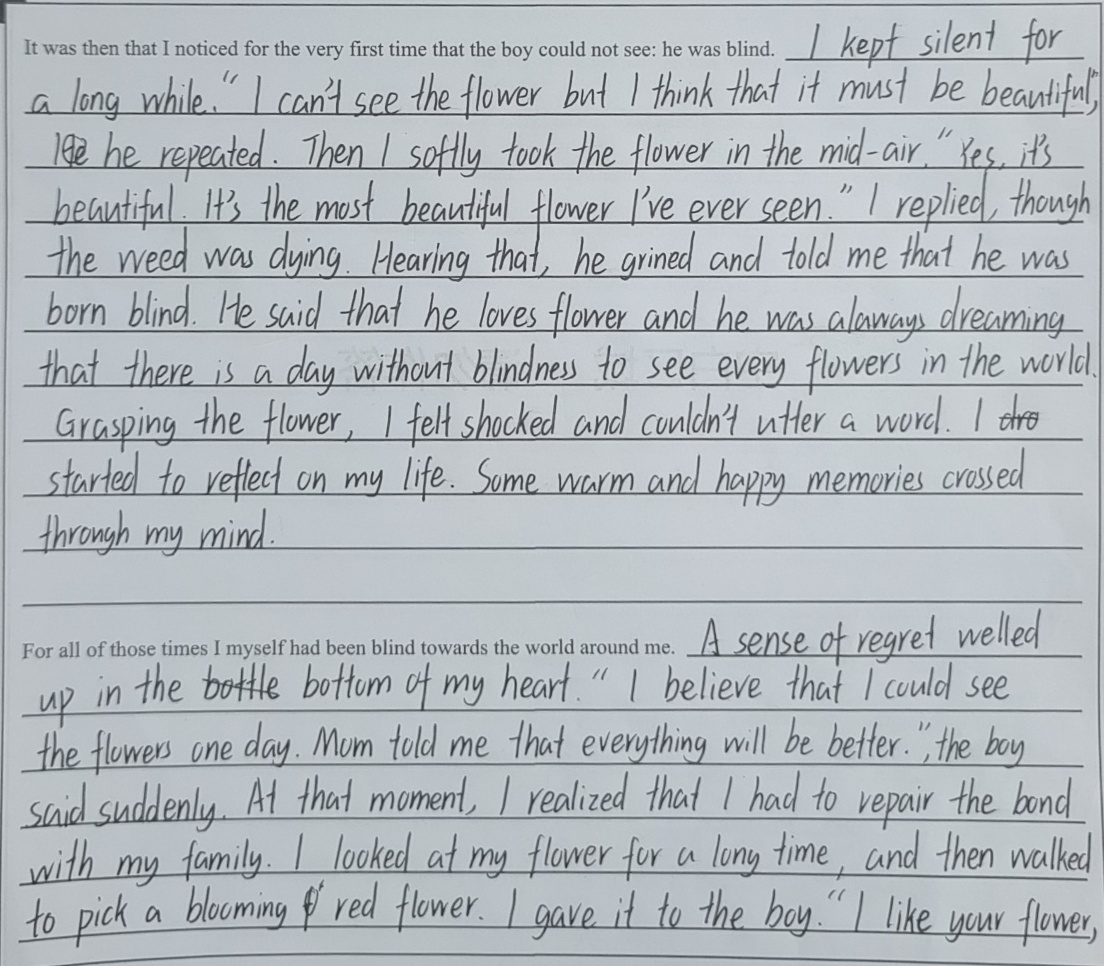 It was then that I noticed for the very first time that the boy could not see: he was blind. I kept silent for
a long while. " I can't see the flower but I think that it must be beautiful,"
he repeated. Then I softly took the flower in the mid-air. " Yes, it's
beautiful. It's the most beautiful flower I've ever seen." I replied, though
the weed was dying. Hearing that, he grined and told me that he was
born blind. He said that he loves flower and he was alaways dreaming
that there is a day without blindness to see every flowers in the world.
Grasping the flower, I felt shocked and couldn't utter a word. I dro
started to reflect on my life. Some warm and happy memories crossed
through my mind.
For all of those times I myself had been blind towards the world around me. A sense of regret welled
up in the bottle bottom of my heart. " I believe that I could see
the flowers one day. Mom told me that everything will be better.", the boy
said suddenly. At that moment, I realized that I had to repair the bond
with my family. I looked at my flower for a long time, and then walked
to pick a blooming red flower. I gave it to the boy. "I like your flower,